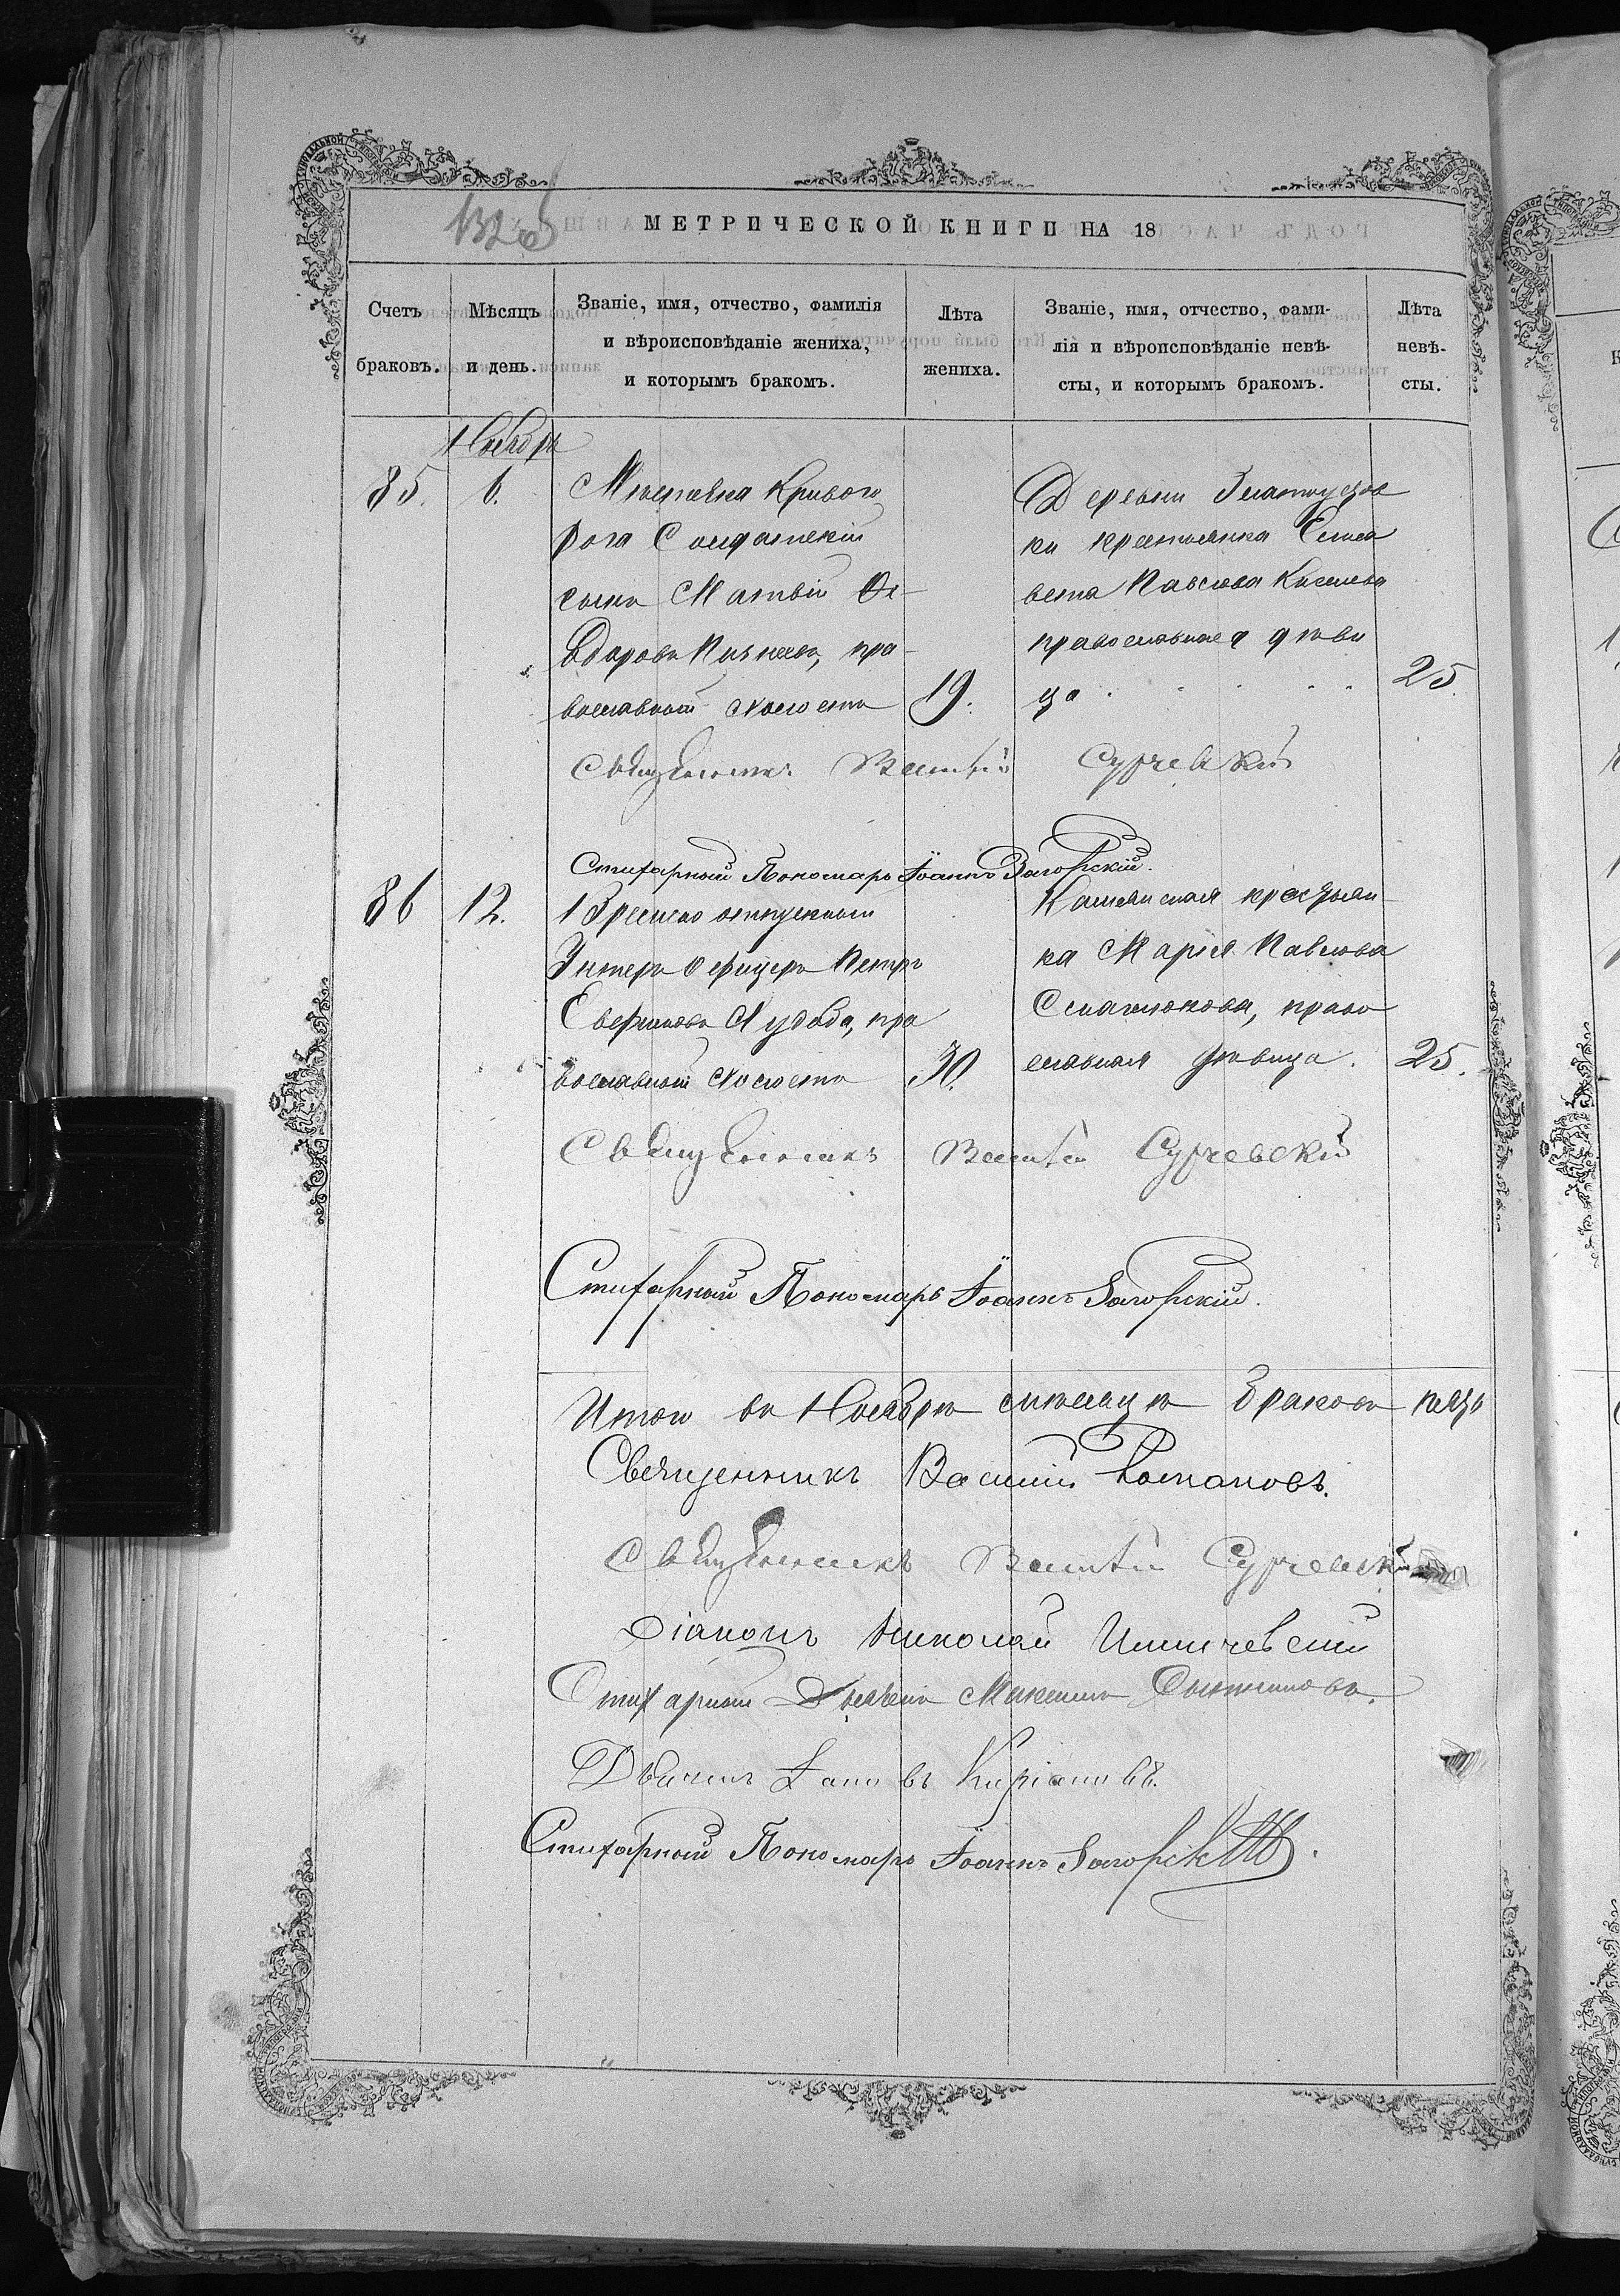 132 об
МЕТРИЧЕСКОЙ КНИГИ НА 18
Счетъ браковъ.
Мѣсяцъ и день.
Званіе, имя, отчество, фамилія
и вѣроисповѣданіе жениха,
и которымъ бракомъ.
Лѣта жениха.
Званіе, имя, отчество, фами-
лія и вѣроисповѣданіе невѣ-
сты, и которымъ бракомъ.
Лѣта невѣ-
сты.
Ноябрь
85. 6.
Мѣстечка Криваго
Рога Солдатскій
сынъ Матвѣй Ѳе-
одоровъ, пра-
вославный холостъ
19.
Деревни
ки крестьянка Елиса
вета Павлова Киселева
православная дѣви
ца
25.
Священникъ Сурчевскій
Стихарный Пономарь Іоаннъ Загорскій.
86 12.
Временно отпускной
Унтеръ Офицеръ Петръ
пра
вославный холостъ
30.
крестьян-
ка Марія Павлова
право
славная дѣвица.
25.
Священникъ Сурчевскій
Стихарный Пономарь Іоаннъ Загорскій.
Итого въ Ноябрѣ мѣсяцѣ браковъ пять
Священникъ Василій Романовъ.
Священникъ Сурчевскій
Діаконъ Николай
Стихарный Дьячекъ Максимъ
Дьячекъ Кирьяновъ.
Стихарный Пономарь Іоаннъ Загорскій.